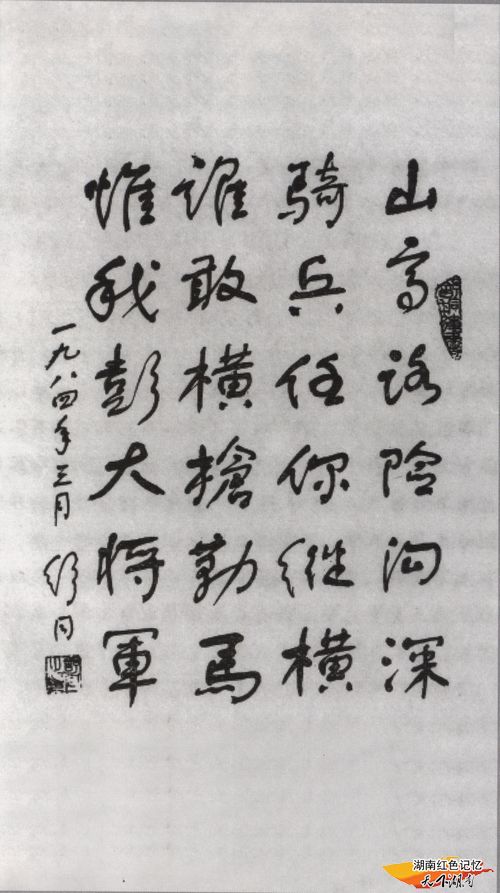 山高路险沟深
骑兵任你纵横
谁敢横枪勒马
惟我彭大将军
一九八四年三月 舒同
湖南红色记忆
天下湖南